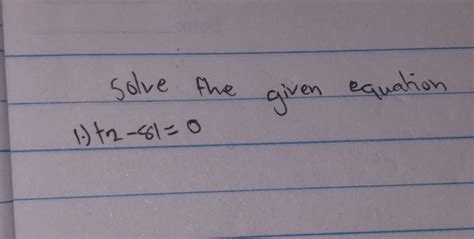 Solve the given equation
1.) t2 - 81 = 0